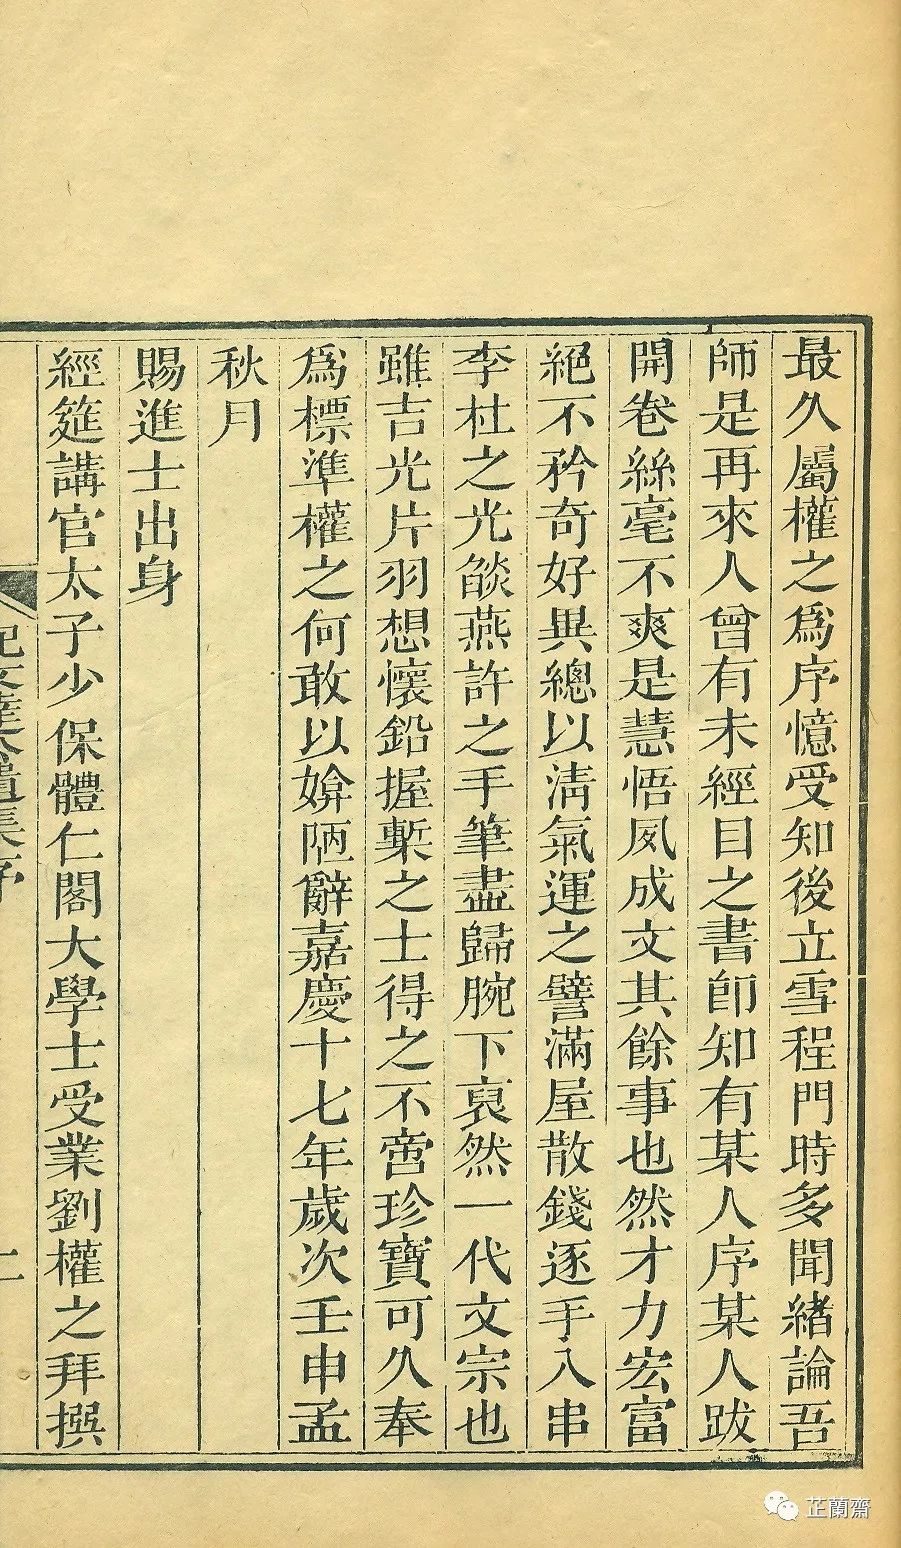 最久屬權之爲序憶受知後立雪程門時多聞緒論吾
師是再來人曾有未經目之書卽知有某人序某人跋
開卷絲毫不爽是慧悟夙成文其餘事也然才力宏富
絕不矜奇好異總以淸氣運之譬滿屋散錢逐手入串
李杜之光燄燕許之手筆盡歸腕下裒然一代文宗也
雖吉光片羽想懷鉛握槧之士得之不啻珍寶可久奉
爲標準權之何敢以媕陋辭嘉慶十七年歲次壬申孟
秋月
賜進士出身
經筵講官太子少保體仁閣大學士受業劉權之拜撰
紀文達公遺集序
芷蘭齋